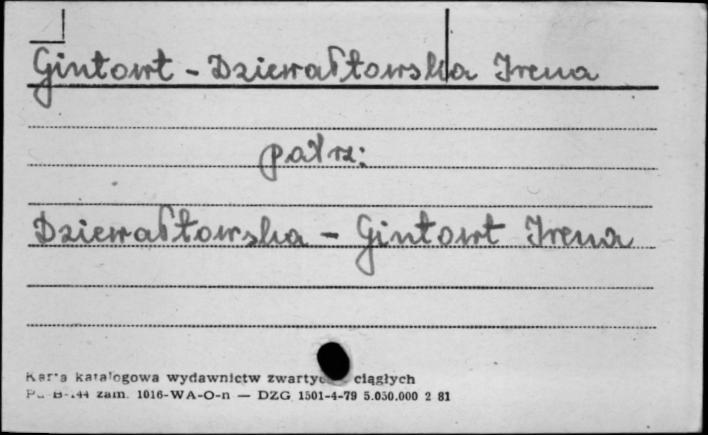 Gintowt - Dziewałtowska Irena
patrz:
Dziewałtowska - Gintowt Irena
Karta katalogowa wydawnictw ciągłych
zam. 1016-WA-O-n — DZG 1501-4-79 5.050.000 2 81